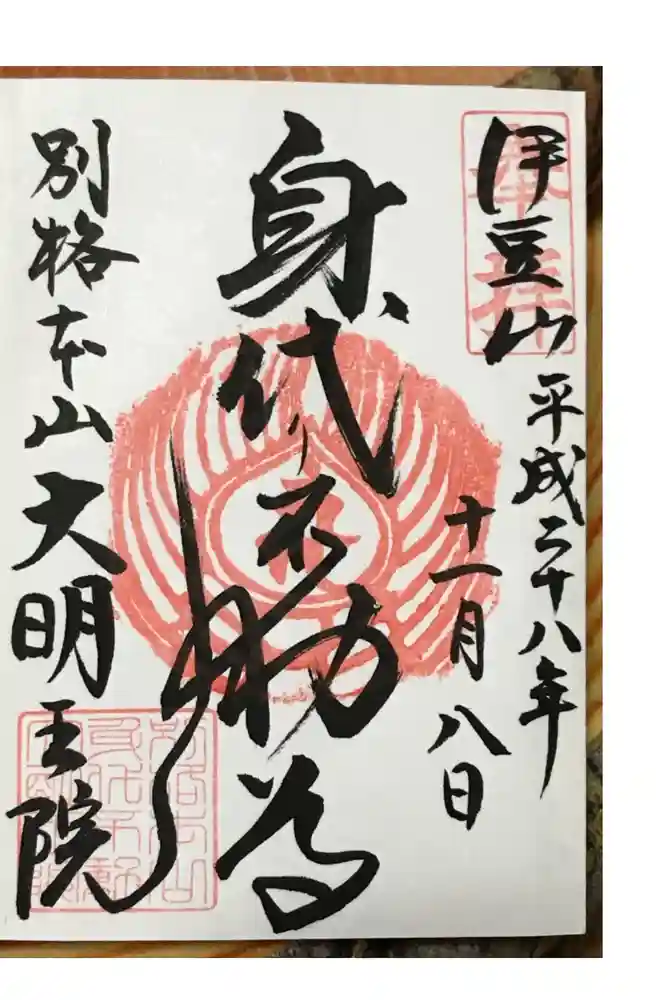 奉拝
伊豆山
平成二十八年
十一月八日
身代不動尊
別格本山大明王院